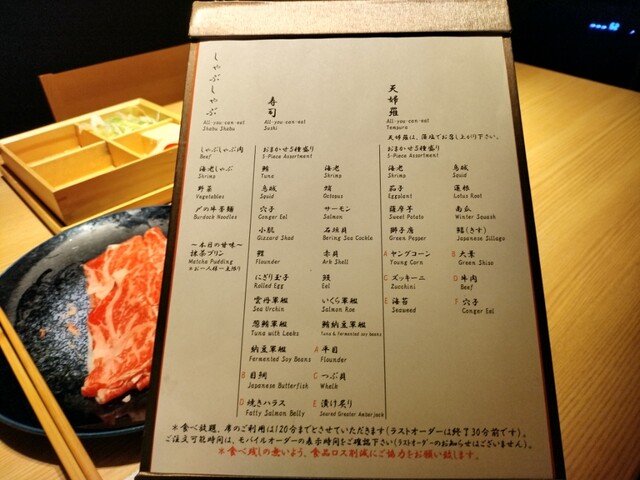 しゃぶしゃぶ
All-you-can-eat
Shabu Shabu
しゃぶしゃぶ肉
Beef
海老しゃぶ
Shrimp
野菜
Vegetables
〆の牛蒡麺
Burdock Noodles
～本日の甘味～
抹茶プリン
Matcha Pudding
※お一人様一点限り
寿司
All-you-can-eat
Sushi
おまかせ5種盛り
5-Piece Assortment
鮪
Tuna
海老
Shrimp
烏賊
Squid
蛸
Octopus
穴子
Conger Eel
サーモン
Salmon
小肌
Gizzard Shad
石垣貝
Bering Sea Cockle
鰈
Flounder
赤貝
Ark Shell
にぎり玉子
Rolled Egg
鰻
Eel
雲丹軍艦
Sea Urchin
いくら軍艦
Salmon Roe
葱鮪軍艦
Tuna with Leeks
鮪納豆軍艦
Tuna & Fermented soy beans
納豆軍艦
Fermented Soy Beans
A 平目
Flounder
B 目鯛
Japanese Butterfish
C つぶ貝
Whelk
D 焼きハラス
Fatty Salmon Belly
E 漬け炙り
Seared Greater Amberjack
天婦羅
All-you-can-eat
Tempura
天婦羅は、藻塩でお召し上がり下さい。
おまかせ5種盛り
5-Piece Assortment
海老
Shrimp
烏賊
Squid
茄子
Eggplant
蓮根
Lotus Root
薩摩芋
Sweet Potato
南瓜
Winter Squash
獅子唐
Green Pepper
鱚(きす)
Japanese Sillago
A ヤングコーン
Young Corn
B 大葉
Green Shiso
C ズッキーニ
Zucchini
D 牛肉
Beef
E 海苔
Seaweed
F 穴子
Conger Eel
＊食べ放題、席のご利用は120分までとさせていただきます(ラストオーダーは終了30分前です)。
ご注文可能時間は、モバイルオーダーの表示時間をご確認下さい(ラストオーダーのお知らせはございません)。
＊食べ残しの無いよう、食品ロス削減にご協力をお願い致します。